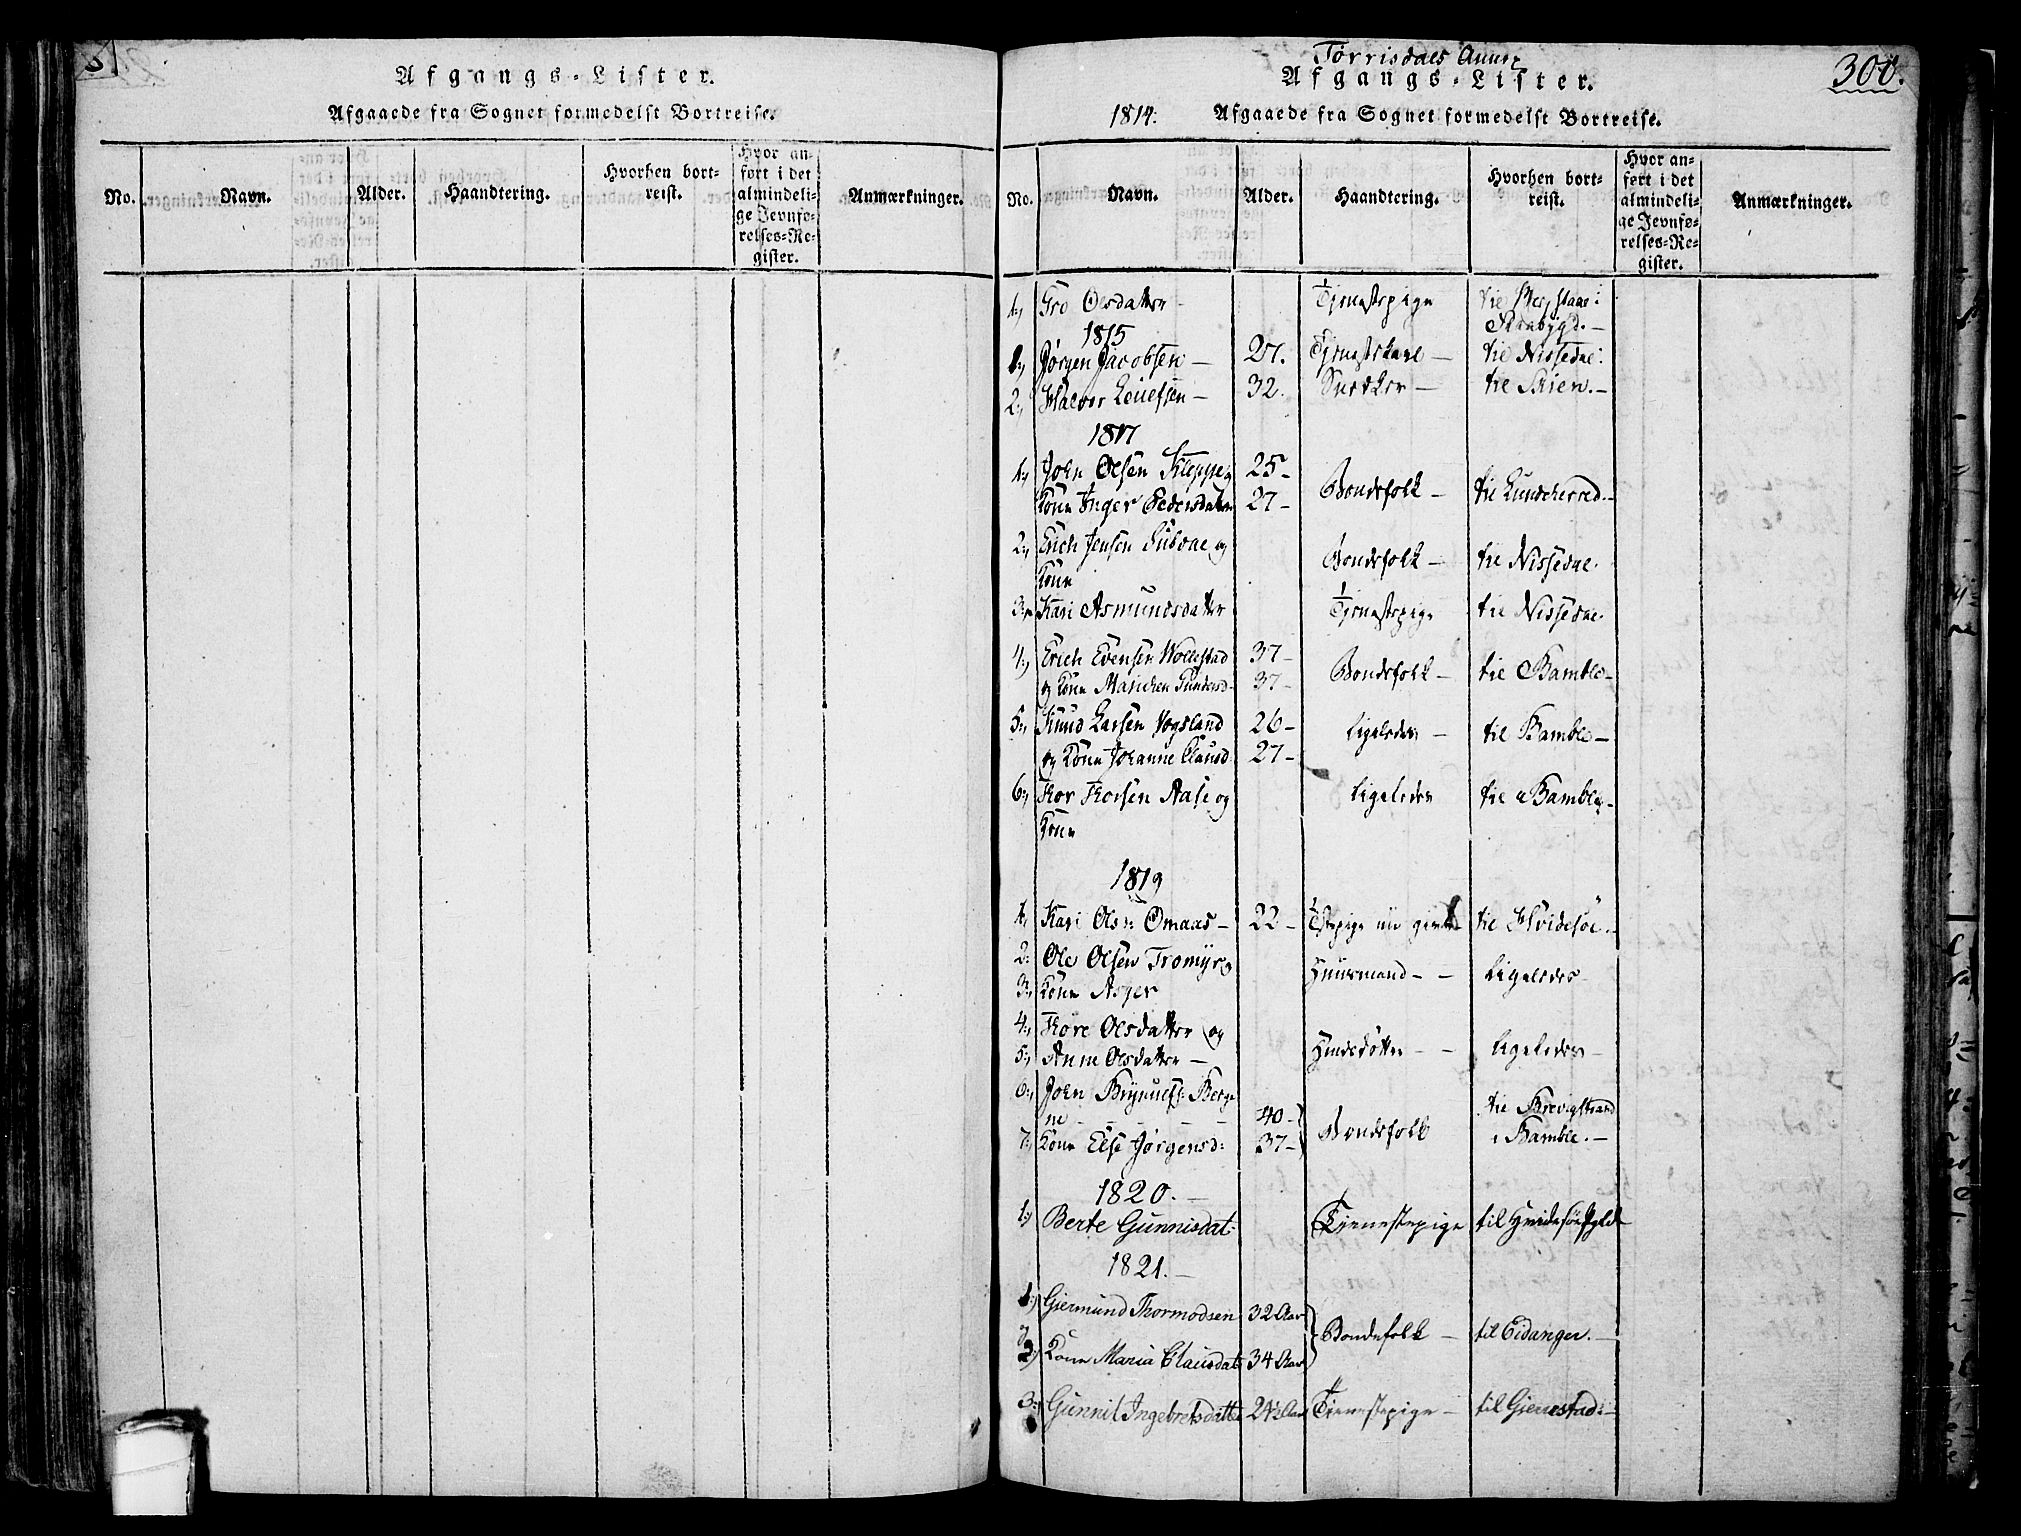 Afgangs-Lister.
Afgaaede fra Sognet formedelst Bortreise.
No. Navn. Alder. Haandtering. Hvorhen bortreist. Hvor anført i det almindelige Jevnførelses-Register. Anmærkninger.
Tørrisdals Annex
300.
Afgangs-Lister.
1814: Afgaaede fra Sognet formedelst Bortreise.
No. Navn. Alder. Haandtering. Hvorhen bortreist. Hvor anført i det almindelige Jevnførelses-Register. Anmærkninger.
1, Gro Olsdatter Tjenestepige til
1815
1, Jørgen Jacobsen — 27. Tjenestekarl — til Nissedal.
2, Halvor Leuefsen — 32. Snedker — til Skien. —
1817
1, John Olsen Kleppe og 25 —
Kone Inger Pedersdatter 27 — Bondefolk — til Lundeherred. —
2, Erich Jensen og
Kone Bondefolk — til Nissedal.
3, Kari Asmundsdatter Tjenestepige til Nissedal.
4, Erich Evensen Wollestad 37 —
og Kone Marichen Gundersd. 37 — Bondefolk — til Bamble —
5, Knud Larsen Vogsland 26 —
og Kone Johanne Clausd. 27 — ligeledes — til Bamble —
6, Thor Thorsen Aase og ligeledes til Bamble —
Kone
1819
1, Kari Ols: Omaas — 22 — til Hvidesøe. —
2. Ole Olsen Tromyr og Huusmand — — ligeledes
3, Kone Asger
4, Thore Olsdatter og
5, Anne Olsdatter — — — ligeledes —
6, John Brynulfs: Berge
ne — — — — 40 — til Brevigstrand
7, Kone Else Jørgensd: 37 — Bondefolk i Bamble. —
1820. —
1, Berte Gunnisdat: Tjenestepige til
1821. —
1, Giermund Thormodsen 32 Aar
2, Kone Maria Clausdat: 34 Aar Bondefolk — til Eidanger. —
3, Gunnil Ingebretsdatter 24½ Aar Tienestepige — til Gierestad: —